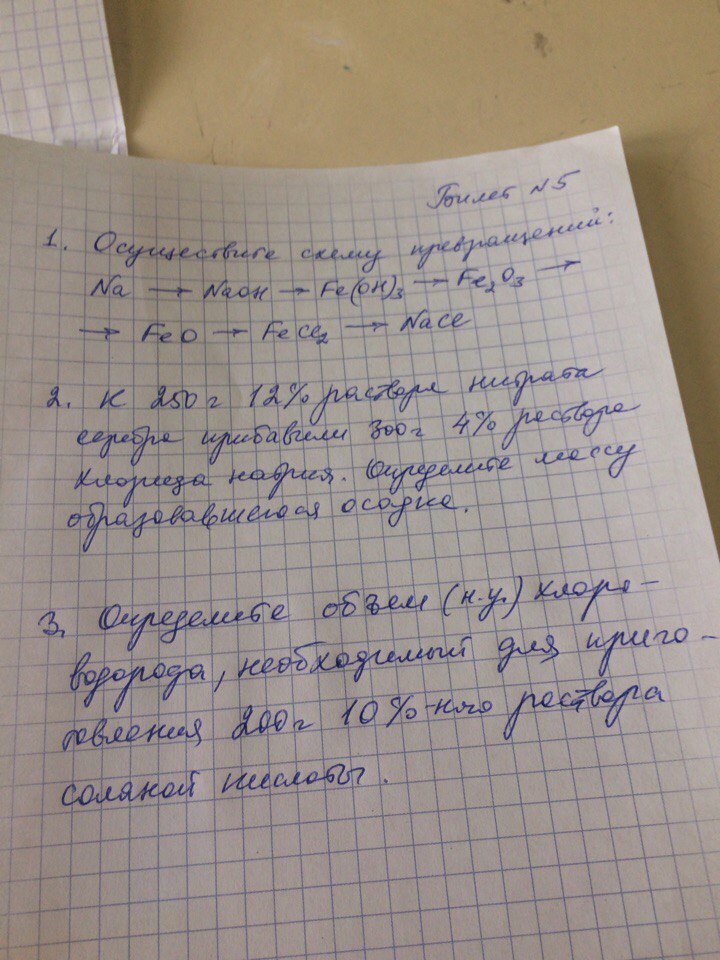 Билет №5
1. Осуществите схему превращений:
Na → NaOH → Fe(OH)₃ → Fe₂O₃ →
→ FeO → FeCl₂ → NaCl
2. К 250г 12% раствора нитрата
серебра прибавили 300г 4% раствора
хлорида натрия. Определите массу
образовавшегося осадка.
3. Определите объем (н.у.) хлоро-
водорода, необходимый для приго-
товления 200г 10%-ного раствора
соляной кислоты.